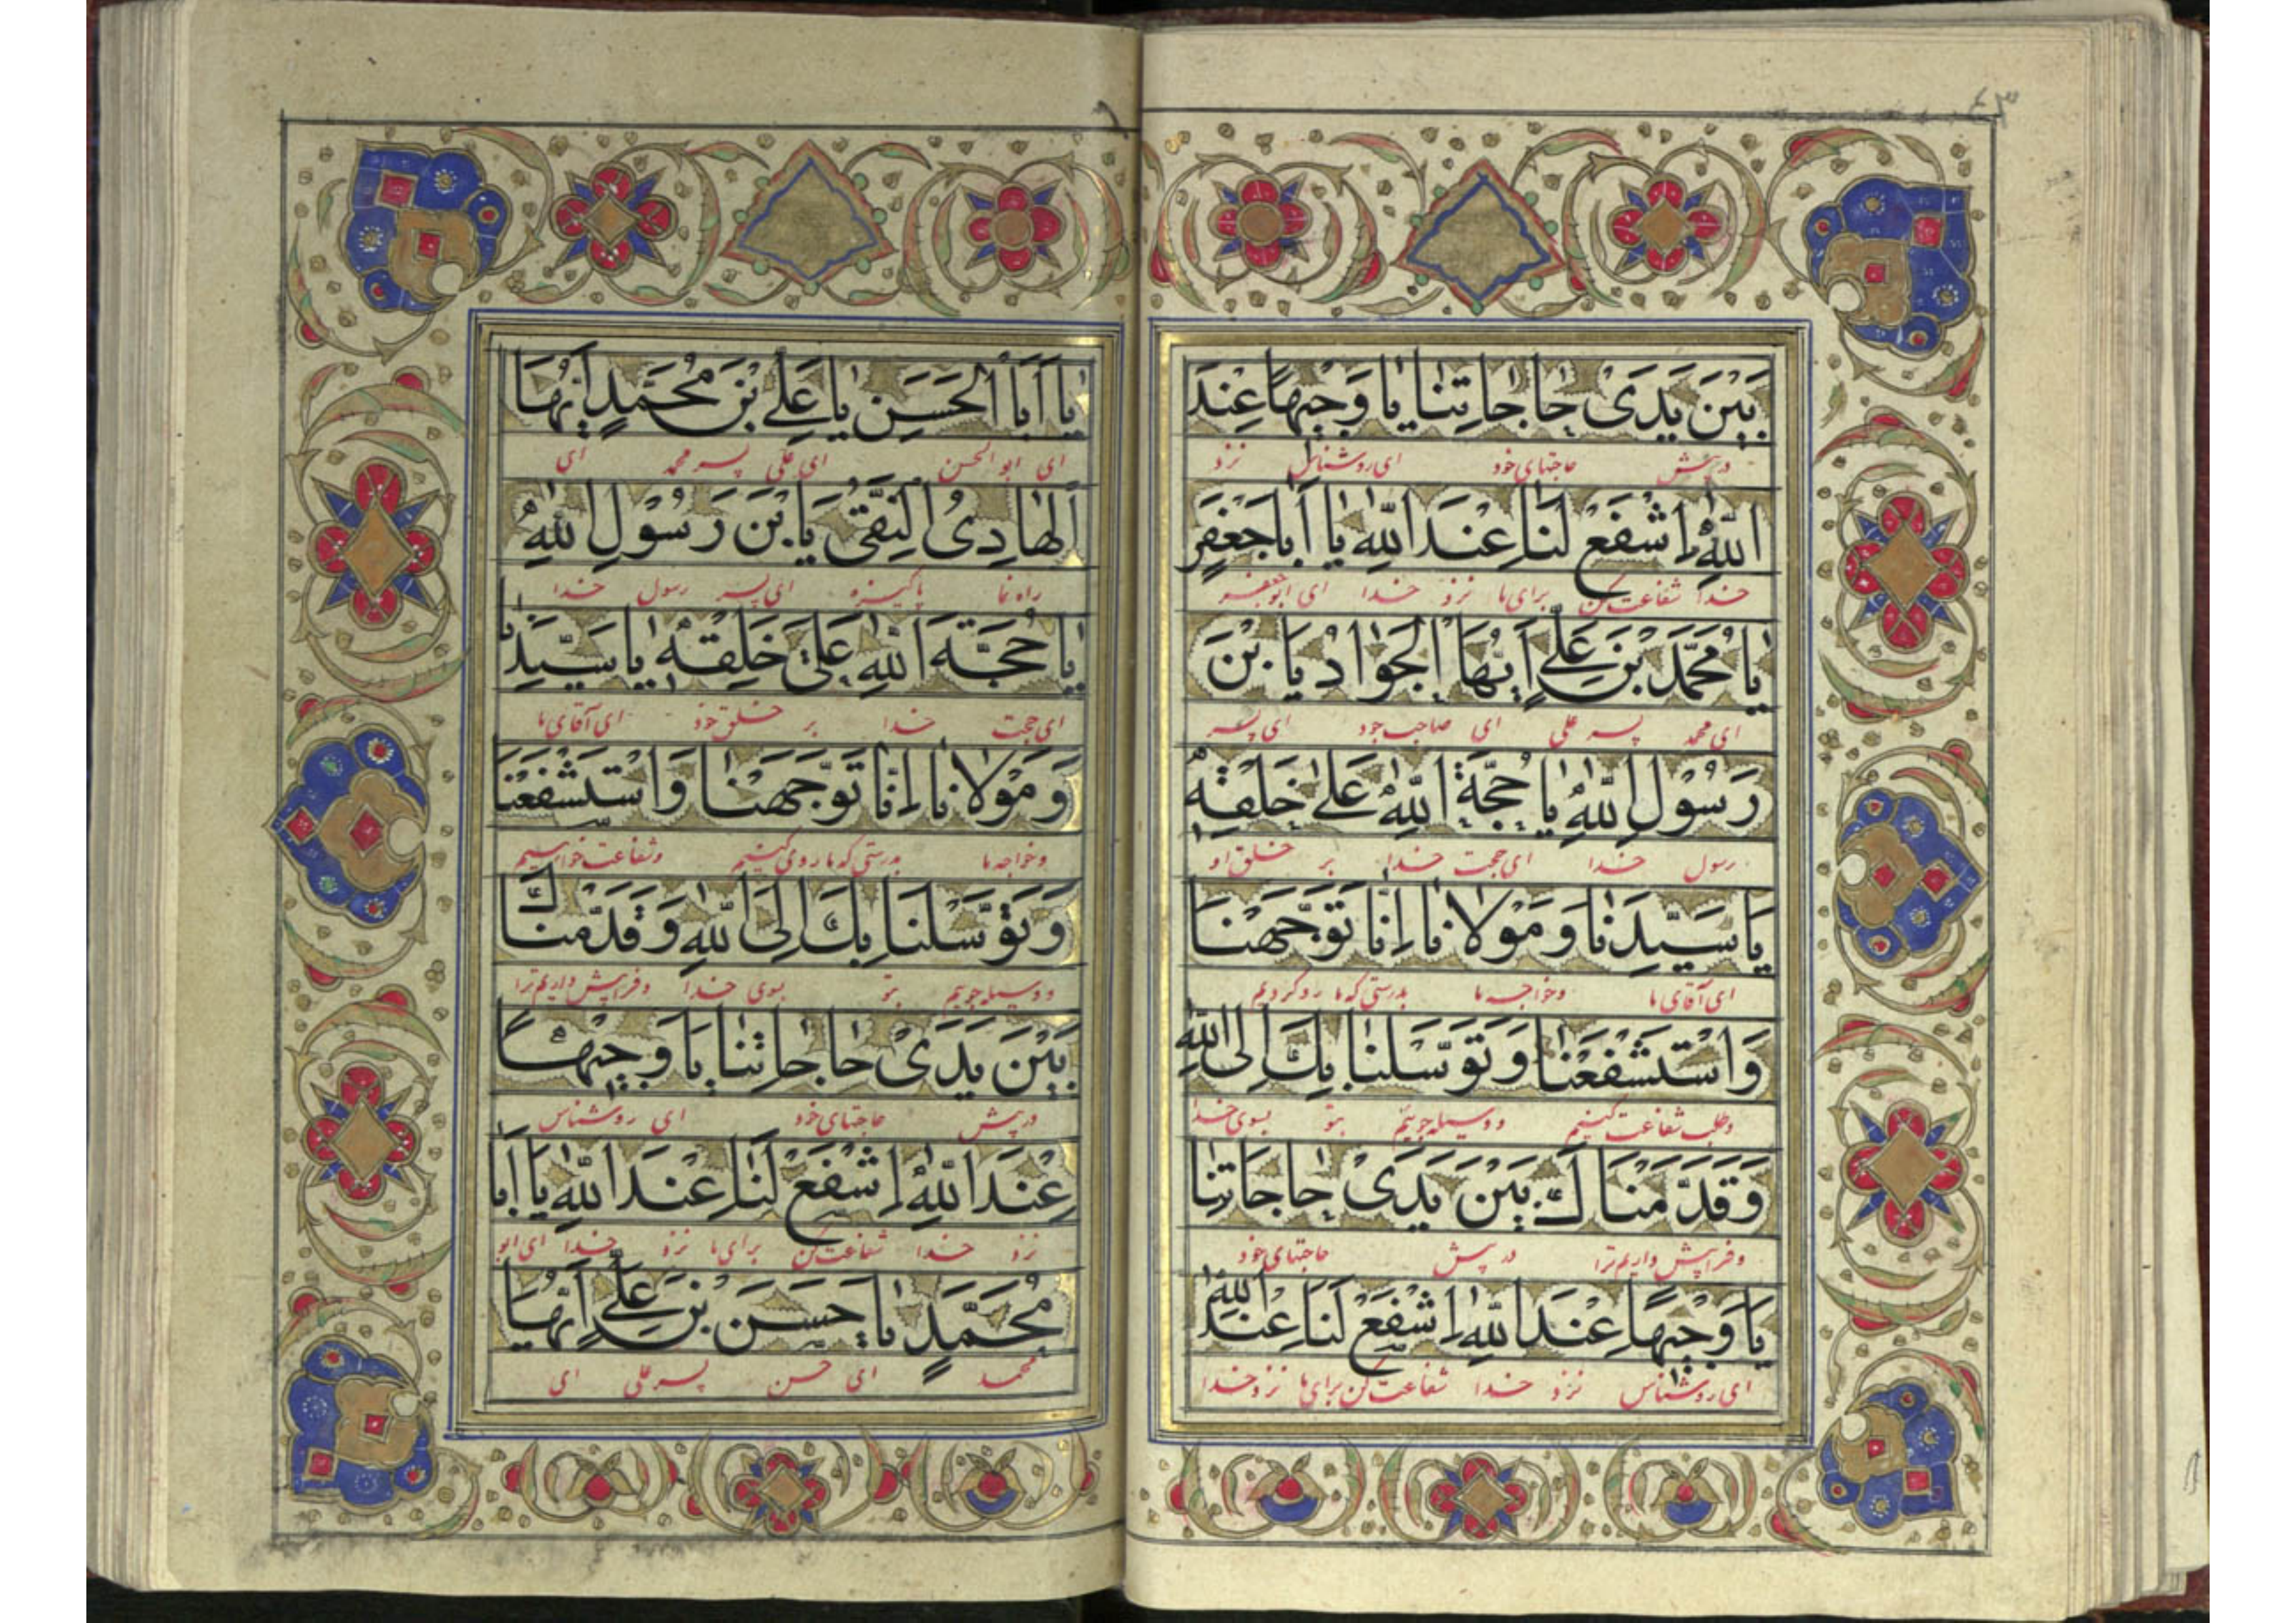 ٤٣
بَيْنَ يَدَىْ حاجاتِنا يا وَجيهاً عِنْدَ
در پیش حاجتهای خود ای روشناس نزد
اللهِ اِشْفَعْ لَنا عِنْدَ اللهِ يا اَبا جَعْفَرٍ
خدا شفاعت کن برای ما نزد خدا ای ابو جعفر
يا مُحَمَّدَ بْنَ عَلِيٍّ اَيُّهَا الْجَوادُ يَا بْنَ
ای محمد پسر علی ای صاحب جود ای پسر
رَسُوْلِ اللهِ يا حُجَّةَ اللهِ عَلىٰ خَلْقِهِ
رسول خدا ای حجت خدا بر خلق او
يا سَيِّدَنا وَ مَوْلانا اِنّا تَوَجَّهْنا
ای آقای ما و خواجه ما بدرستی که ما رو کردیم
وَاسْتَشْفَعْنا وَ تَوَسَّلْنا بِكَ اِلَى اللهِ
و طلب شفاعت کنیم و وسیله جوئیم بتو بسوی خدا
وَ قَدَّمْناكَ بَيْنَ يَدَىْ حاجاتِنا
و فرا پیش داریم ترا در پیش حاجتهای خود
يا وَجيهاً عِنْدَ اللهِ اِشْفَعْ لَنا عِنْدَ اللهِ
ای روشناس نزد خدا شفاعت کن برای ما نزد خدا
يا اَبَا الْحَسَنِ يا عَلِيَّ بْنَ مُحَمَّدٍ اَيُّهَا
ای ابو الحسن ای علی پسر محمد ای
الْهادِىُ النَّقِىُّ يَا بْنَ رَسُوْلِ اللهِ
راه نما پاکیزه ای پسر رسول خدا
يا حُجَّةَ اللهِ عَلىٰ خَلْقِهِ يا سَيِّدَنا
ای حجت خدا بر خلق خود ای آقای ما
وَ مَوْلانا اِنّا تَوَجَّهْنا وَاسْتَشْفَعْنا
و خواجه ما بدرستی که ما روی کنیم و شفاعت خواهیم
وَ تَوَسَّلْنا بِكَ اِلَى اللهِ وَ قَدَّمْناكَ
و وسیله جوییم بتو بسوی خدا و فرا پیش داریم ترا
بَيْنَ يَدَىْ حاجاتِنا يا وَجيهاً
در پیش حاجتهای خود ای روشناس
عِنْدَ اللهِ اِشْفَعْ لَنا عِنْدَ اللهِ يا اَبا
نزد خدا شفاعت کن برای ما نزد خدا ای ابو
مُحَمَّدٍ يا حَسَنَ بْنَ عَلِيٍّ اَيُّهَا
محمد ای حسن پسر علی ای